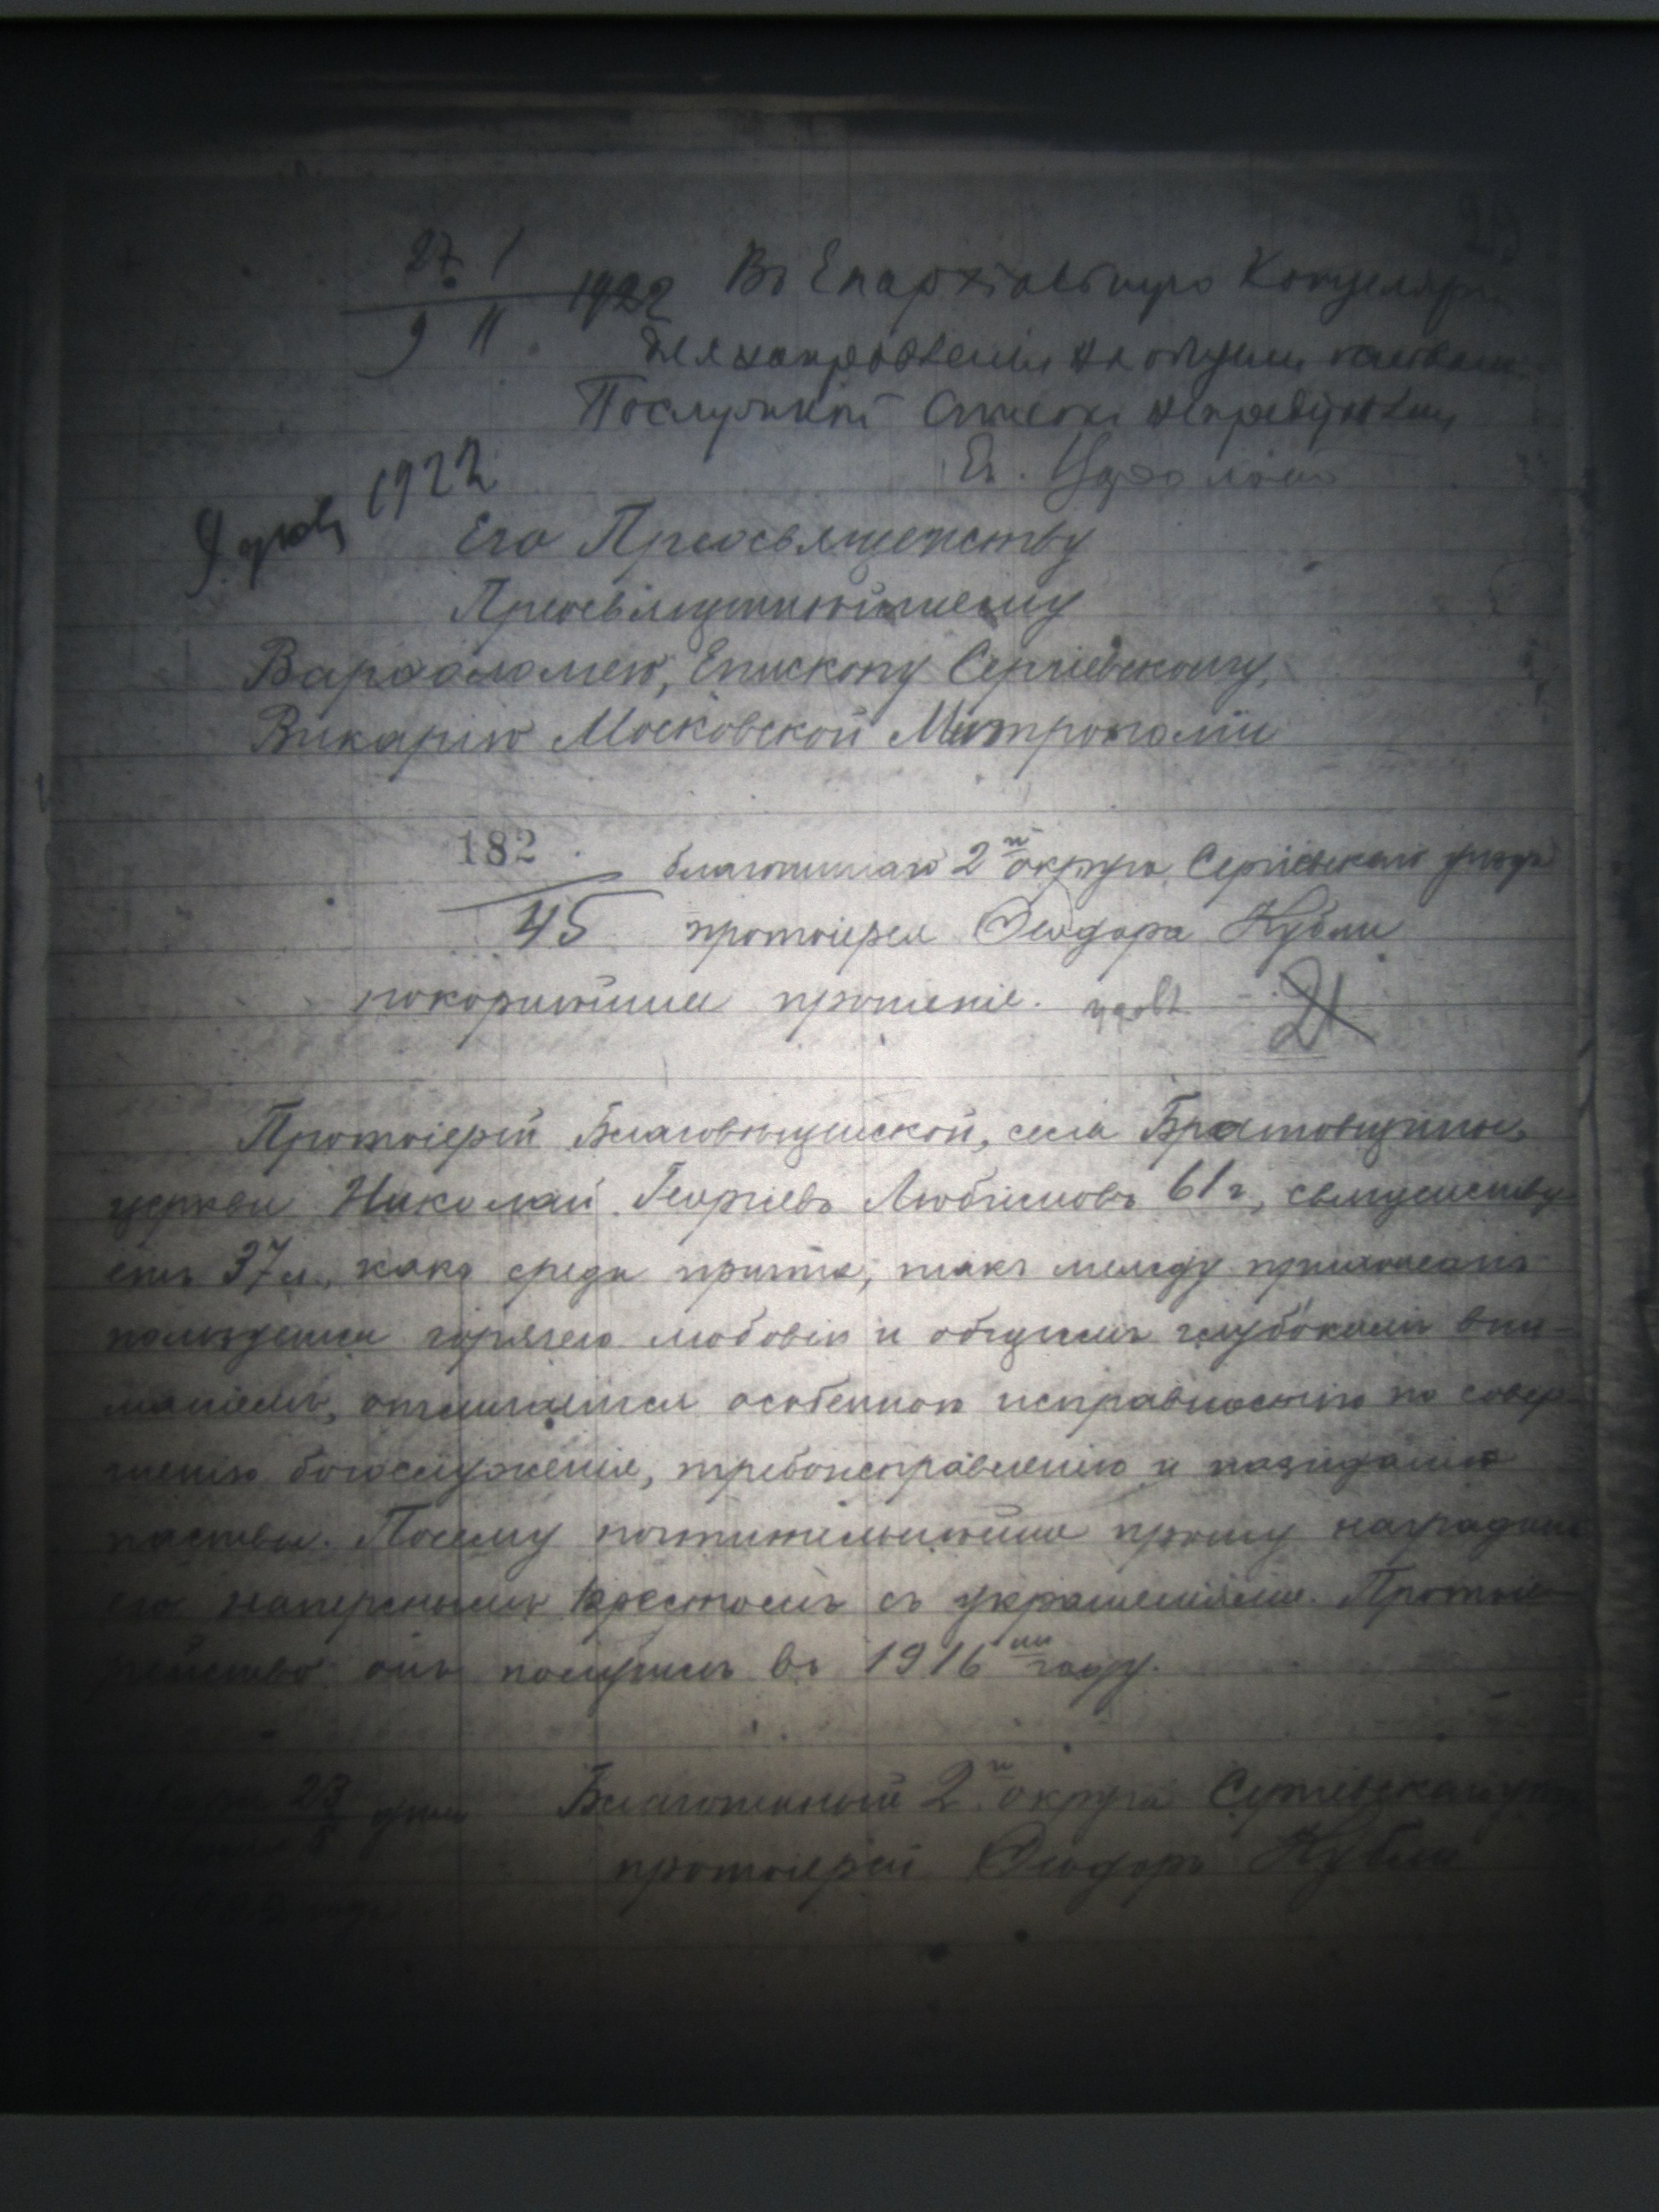 27 I
9 II 1922 Въ Епархіальную Канцеляр
для направленія
Послужной списокъ
Еп.
1922
Его Преосвященству
Преосвященнѣйшему
Варѳоломею, Епископу Сергіевскому,
Викарію Московской Митрополіи
182
45
благочиннаго 2го округа Сергіевскаго уѣзда
протоіерея Ѳеодора Кубли
покорнѣйшее прошеніе.
21
Протоіерей Благовѣщенской, села Братовщины,
церкви Николай Георгіевъ Любимовъ 61 г., священству
етъ 37 л., какъ среди причта, такъ между прихожанъ
пользуется горячею любовію и общимъ глубокимъ вни-
маніемъ, отличается особенною исправностію по совер
шенію богослуженія, требоисправленію и назиданію
паствы. Посему почтительнѣйше прошу наградить
его наперснымъ крестомъ съ украшеніями. Протоіе-
рейство онъ получилъ въ 1916 мъ году.
23 дня Благочинный 2го округа Сергіевскаго
протоіерей Ѳеодоръ Кубли